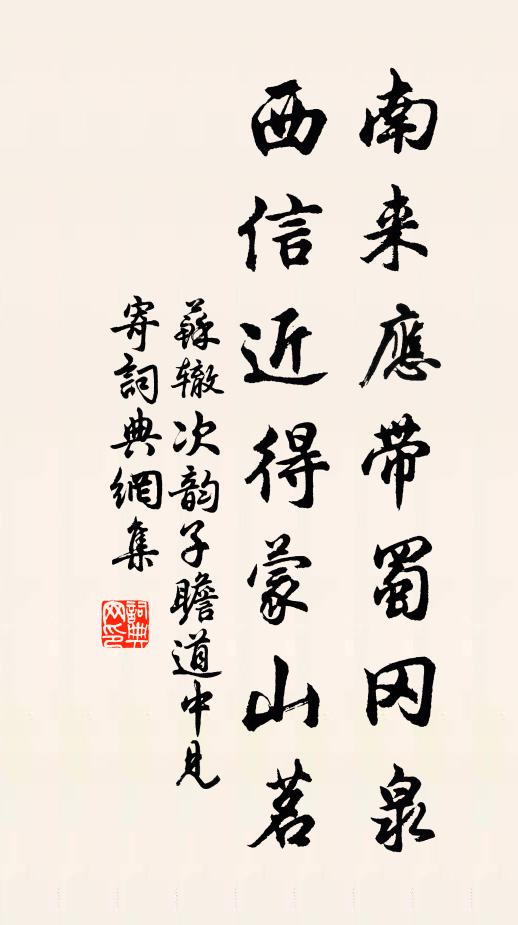 南来應带蜀冈泉
西信近得蒙山茗
蘇辙次韵子瞻道中見
寄詞典網集
詞典
网印